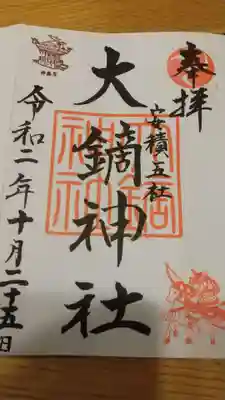 奉拝
安積五社
大鏑神社
令和二年十月二十五日